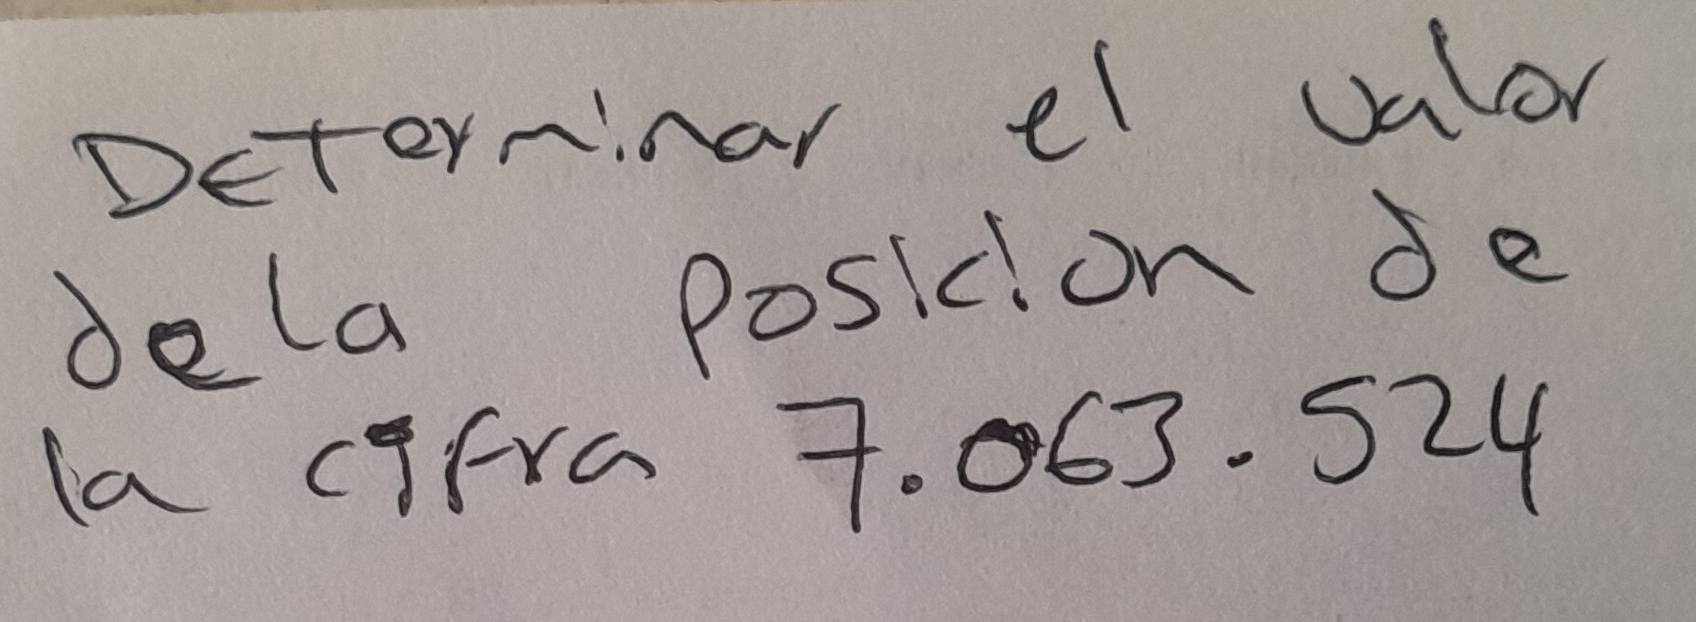 Determinar el valor
de la posicion de
la cifra 7.063.524